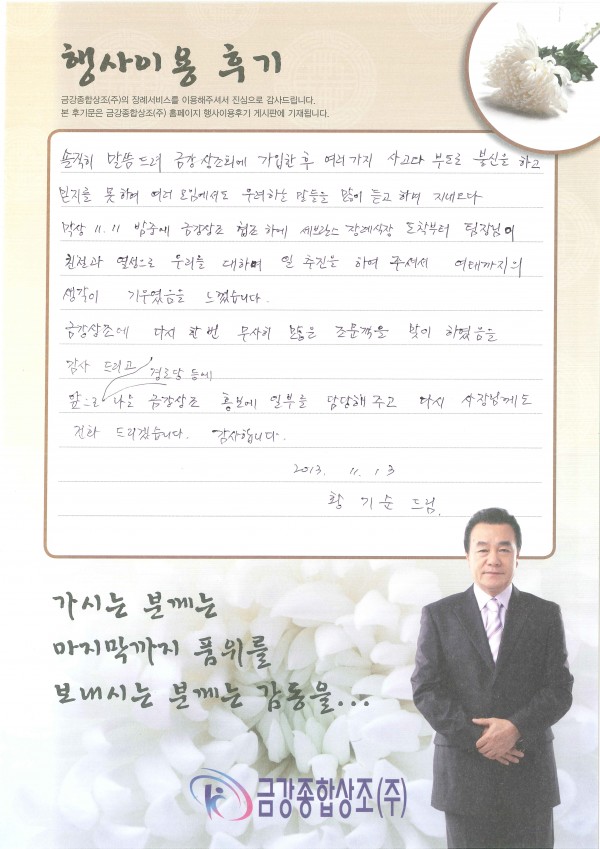 행사이용 후기
금강종합상조(주)의 장례서비스를 이용해주셔서 진심으로 감사드립니다.
본 후기문은 금강종합상조(주) 홈페이지 행사이용후기 게시판에 기재됩니다.
솔직히 말씀드려 금강상조회에 가입한 후 여러가지 사고다 부도로 불신을 하고
믿지를 못하며 여러 모임에서도 우려하는 말들을 많이 듣고 하며 지내드다
막상 11. 11 밤중에 금강상조 협조하에 세브란스 장례식장 도착부터 팀장님이
친절과 열성으로 우리를 대하며 일 추진을 하여 주셔서 여태까지의
생각이 기우였음을 느꼈습니다.
금강상조에 다시 한번 무사히 많은 조문객을 맞이 하였음을
감사 드리고
경로당 등에
앞으로 나는 금강상조 홍보에 일부를 담당해 주고 다시 사장님께도
전화 드리겠습니다. 감사합니다.
2013. 11. 13
황기순 드림
가시는 분께는
마지막까지 품위를
보내시는 분께는 감동을...
금강종합상조(주)